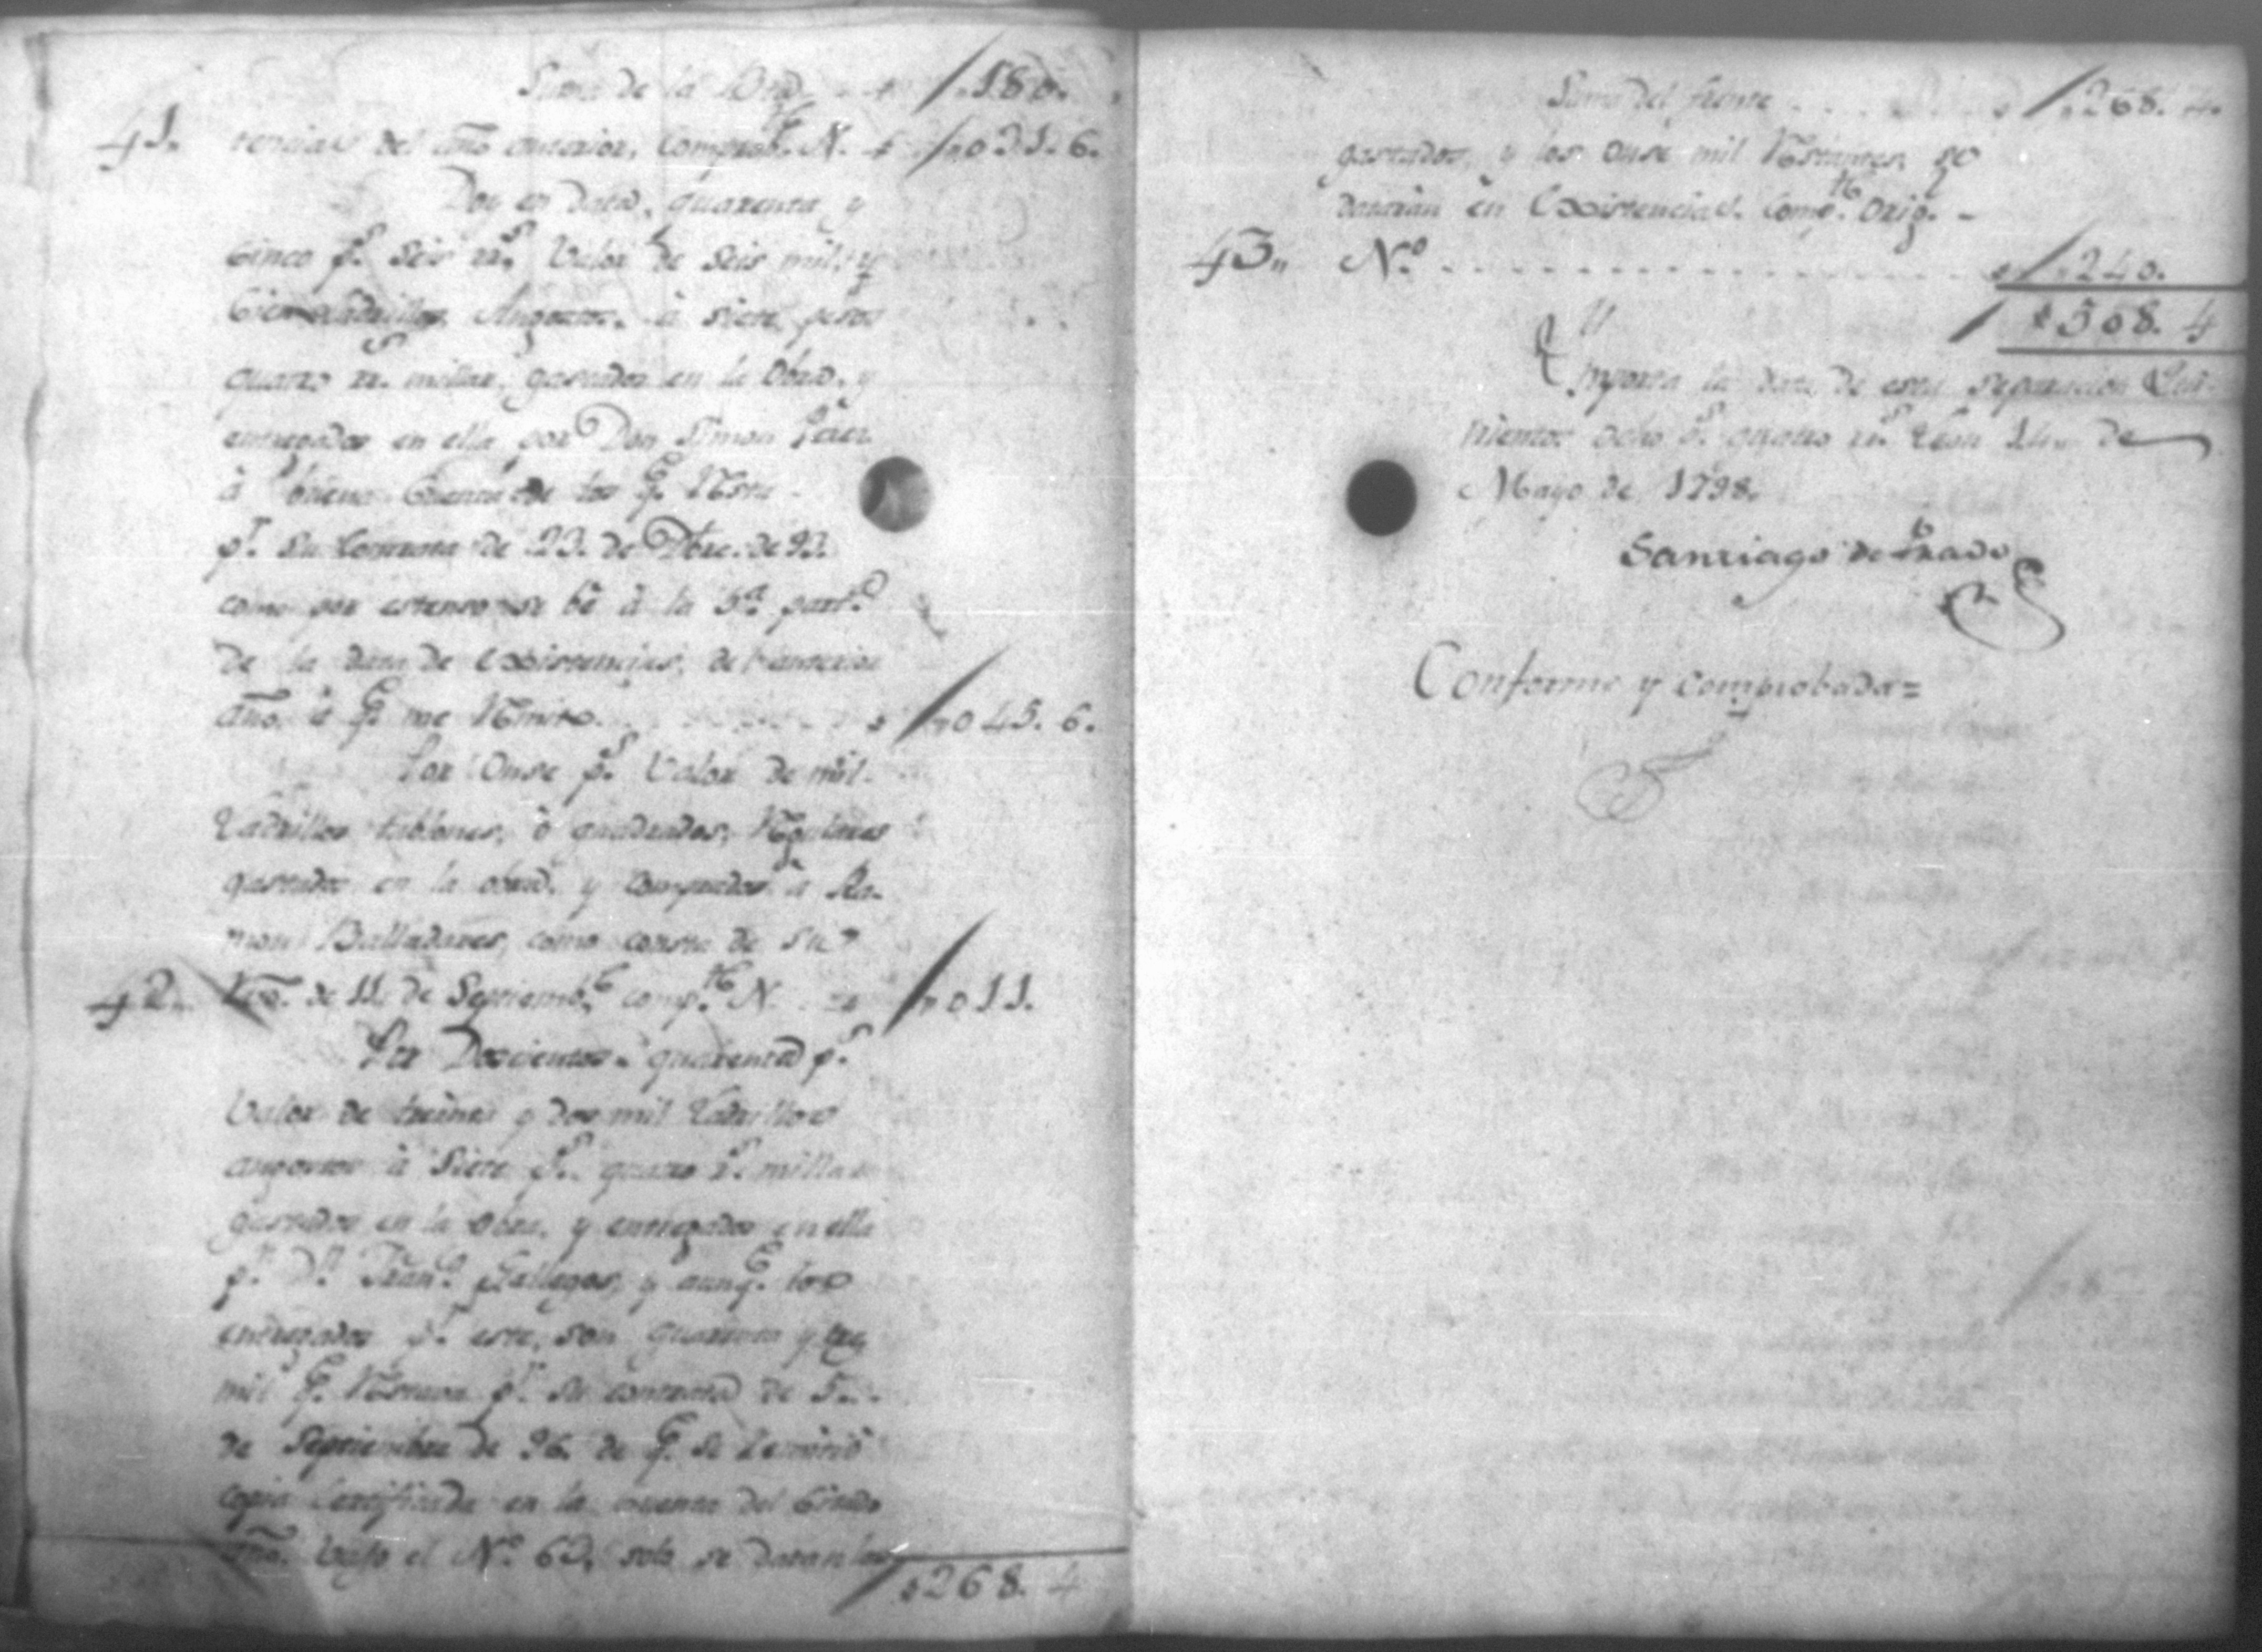 Suma de la Bta. " 180.
41. tencias del año anterior, Comprob.te N. " 031. 6.
Doy en Data, quarenta y
Cinco p.s Seis rr.s Valor de Seis mil y
Cien Ladrillos Angostos. à Siete pesos
quatro rr.s millar, gastados en la Obra, y
entregados en ella por Don Simon Perez
à buena Cuenta de los q.e
p.r Su Contrata de 23. de Dbre. de 93.
como por estenso se bè à la 5.a part.a
de la data de existencias, del anterior
año, à q.e me Rmito. " 045. 6.
Por Onse p.s Valor de mil
Ladrillos tablones, ò quadrados, Regulares
gastados en la obra y Comprados à Ra-
mon Balladares, como consta de Su
42. Rvo. de 11. de Septiemb.e comp.te N. " 011.
Por Doscientos quarenta p.s
Valor de treinta y dos mil Ladrillos
angostos à Siete p.s quatro r.s millar
gastados en la Obra, y entregados en ella
p.r D.n Fran.o Gallegos, y aunq.e los
entregados p.r este, son quarenta y tres
mil q.e p.r su contrata de 5.
de Septiembre de 96. de q.e Se Remitiò
copia Certificada en la cuenta del Citado
año. bajo el N.o 62, solo se datan los
" 268. 4
Suma del frente " 268. 4.
gastados, y los Onse mil Restantes, se
dataràn en Existencias. Comp.te Orig.l
43" N.o " 240.
" 508. 4
Ymporta la data de esta Separacion Qui-
nientos Ocho p.s quatro rr.s Leon de
Mayo de 1798.
Santiago de Prado
Conforme y Comprobada=